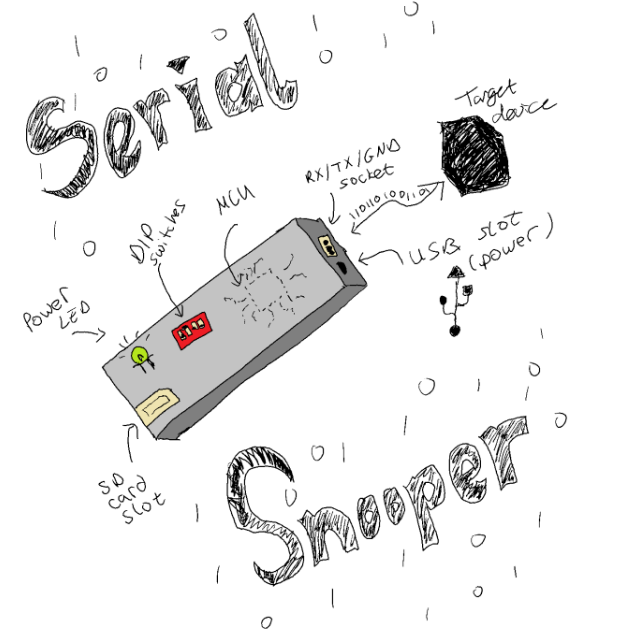 Serial
Target
device
RX/TX/GND
socket
110110100110
MCU
DIP
switches
USB slot
(power)
Power
LED
SD
card
slot
Snooper